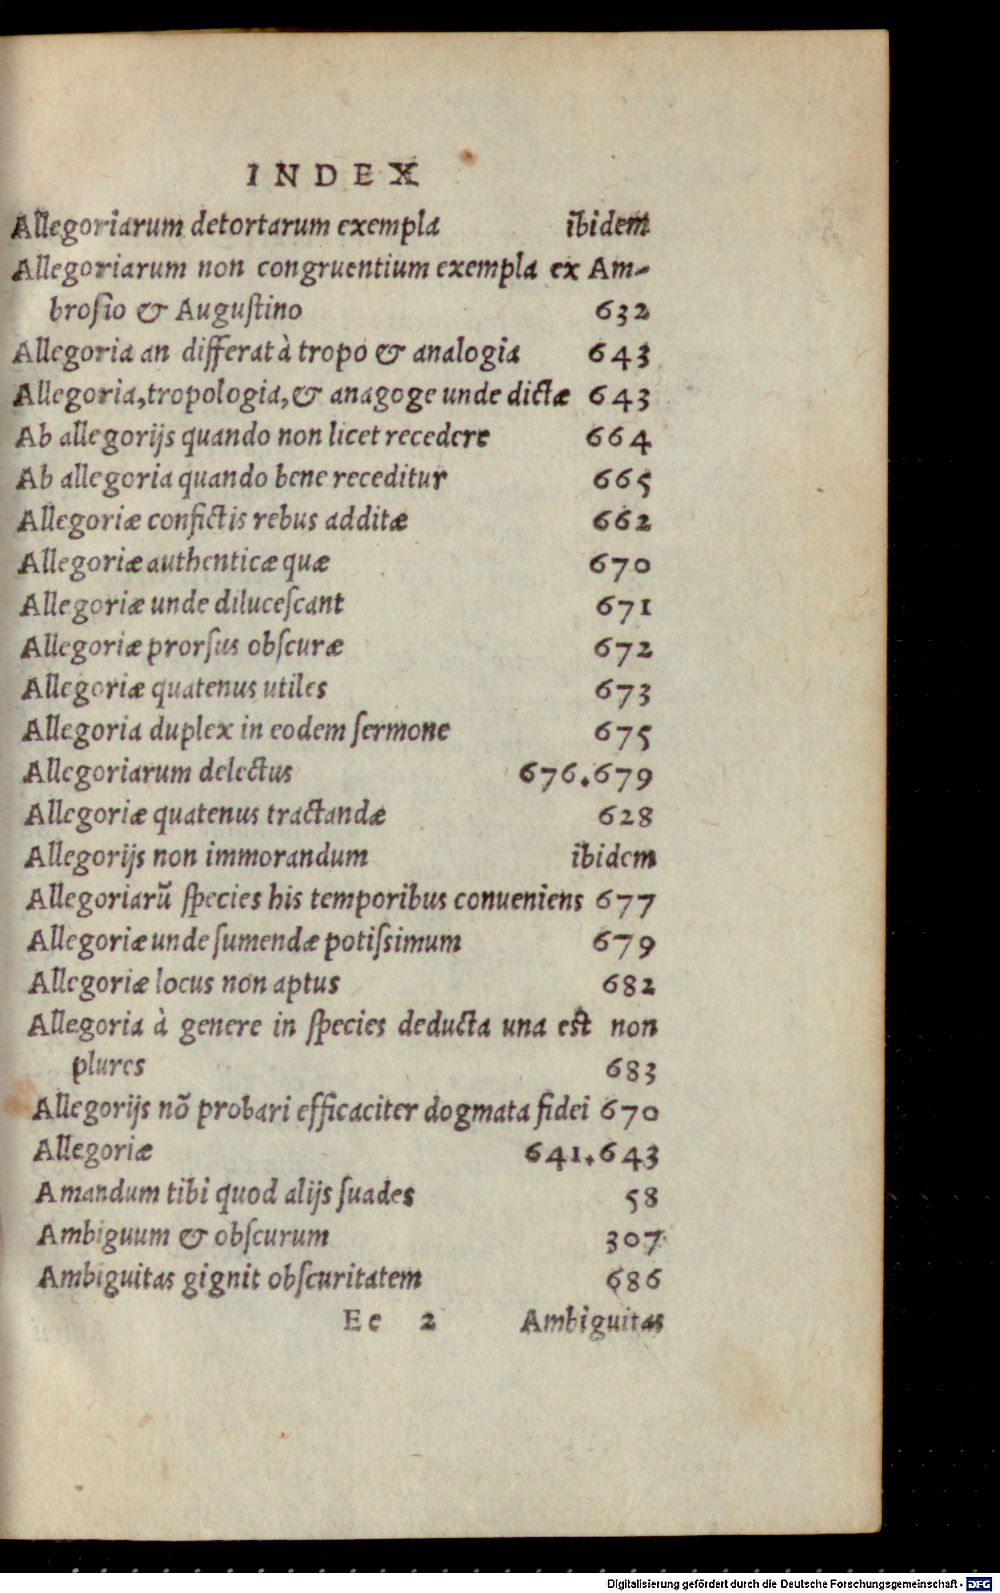 INDEX
Allegoriarum detortarum exempla ibidem
Allegoriarum non congruentium exempla ex Am-
brosio & Auguſtino 632
Allegoria an differat à tropo & analogia 643
Allegoria, tropologia, & anagoge unde dictæ 643
Ab allegorijs quando non licet recedere 664
Ab allegoria quando bene receditur 665
Allegoriæ confictis rebus additæ 662
Allegoriæ authenticæ quæ 670
Allegoriæ unde diluceſcant 671
Allegoriæ prorſus obſcuræ 672
Allegoriæ quatenus utiles 673
Allegoria duplex in eodem ſermone 675
Allegoriarum delectus 676.679
Allegoriæ quatenus tractandæ 628
Allegorijs non immorandum ibidem
Allegoriarũ ſpecies his temporibus conueniens 677
Allegoriæ unde ſumendæ potiſsimum 679
Allegoriæ locus non aptus 682
Allegoria à genere in ſpecies deducta una eſt non
plures 683
Allegorijs nõ probari efficaciter dogmata fidei 670
Allegoriæ 641.643
Amandum tibi quod alijs ſuades 58
Ambiguum & obſcurum 307
Ambiguitas gignit obſcuritatem 686
Ee 2 Ambiguitas
Digitalisierung gefördert durch die Deutsche Forschungsgemeinschaft - DFG